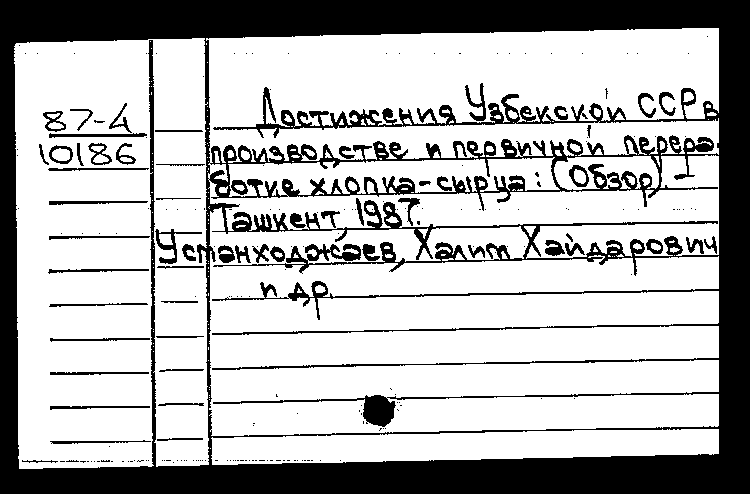 87-4
10186
Достижения Узбекской ССР в
производстве и первичной перера-
ботке хлопка-сырца: (Обзор). -
Ташкент, 1987.
Устанходжаев, Халит Хайдарович
и др.